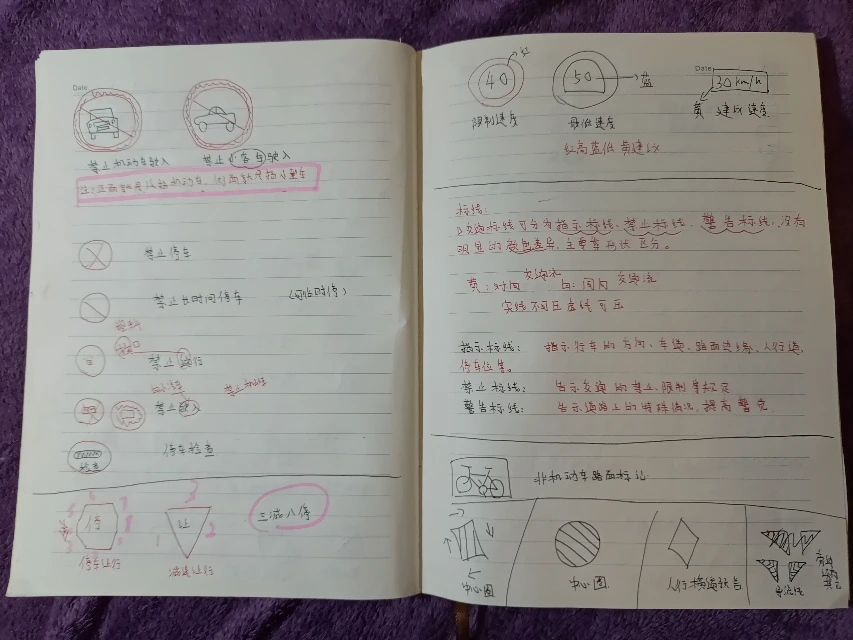 Date
禁止机动车驶入
禁止小客车驶入
禁止停车
禁止长时间停车 (可临时停)
禁止通行
禁止驶入
停车检查
检查
停
让
停车让行
减速让行
三减八停
40
红
限制速度
50
蓝
最低速度
Date
30 km/h
黄 建议速度
红高蓝低 黄建议
标线:
交通标线可分为指示标线、禁止标线、警告标线, 没有
明显的颜色差异, 主要靠形状区分。
黄: 对向 交通流
白: 同向 交通流
实线不可压虚线可压
指示标线: 指示行车的方向、车道、路面边缘、人行道、
停车位等。
禁止标线: 告示交通的禁止、限制等规定
警告标线: 告示道路上的特殊情况, 提高警觉
非机动车路面标记
中心圈
中心圈
人行横道预告